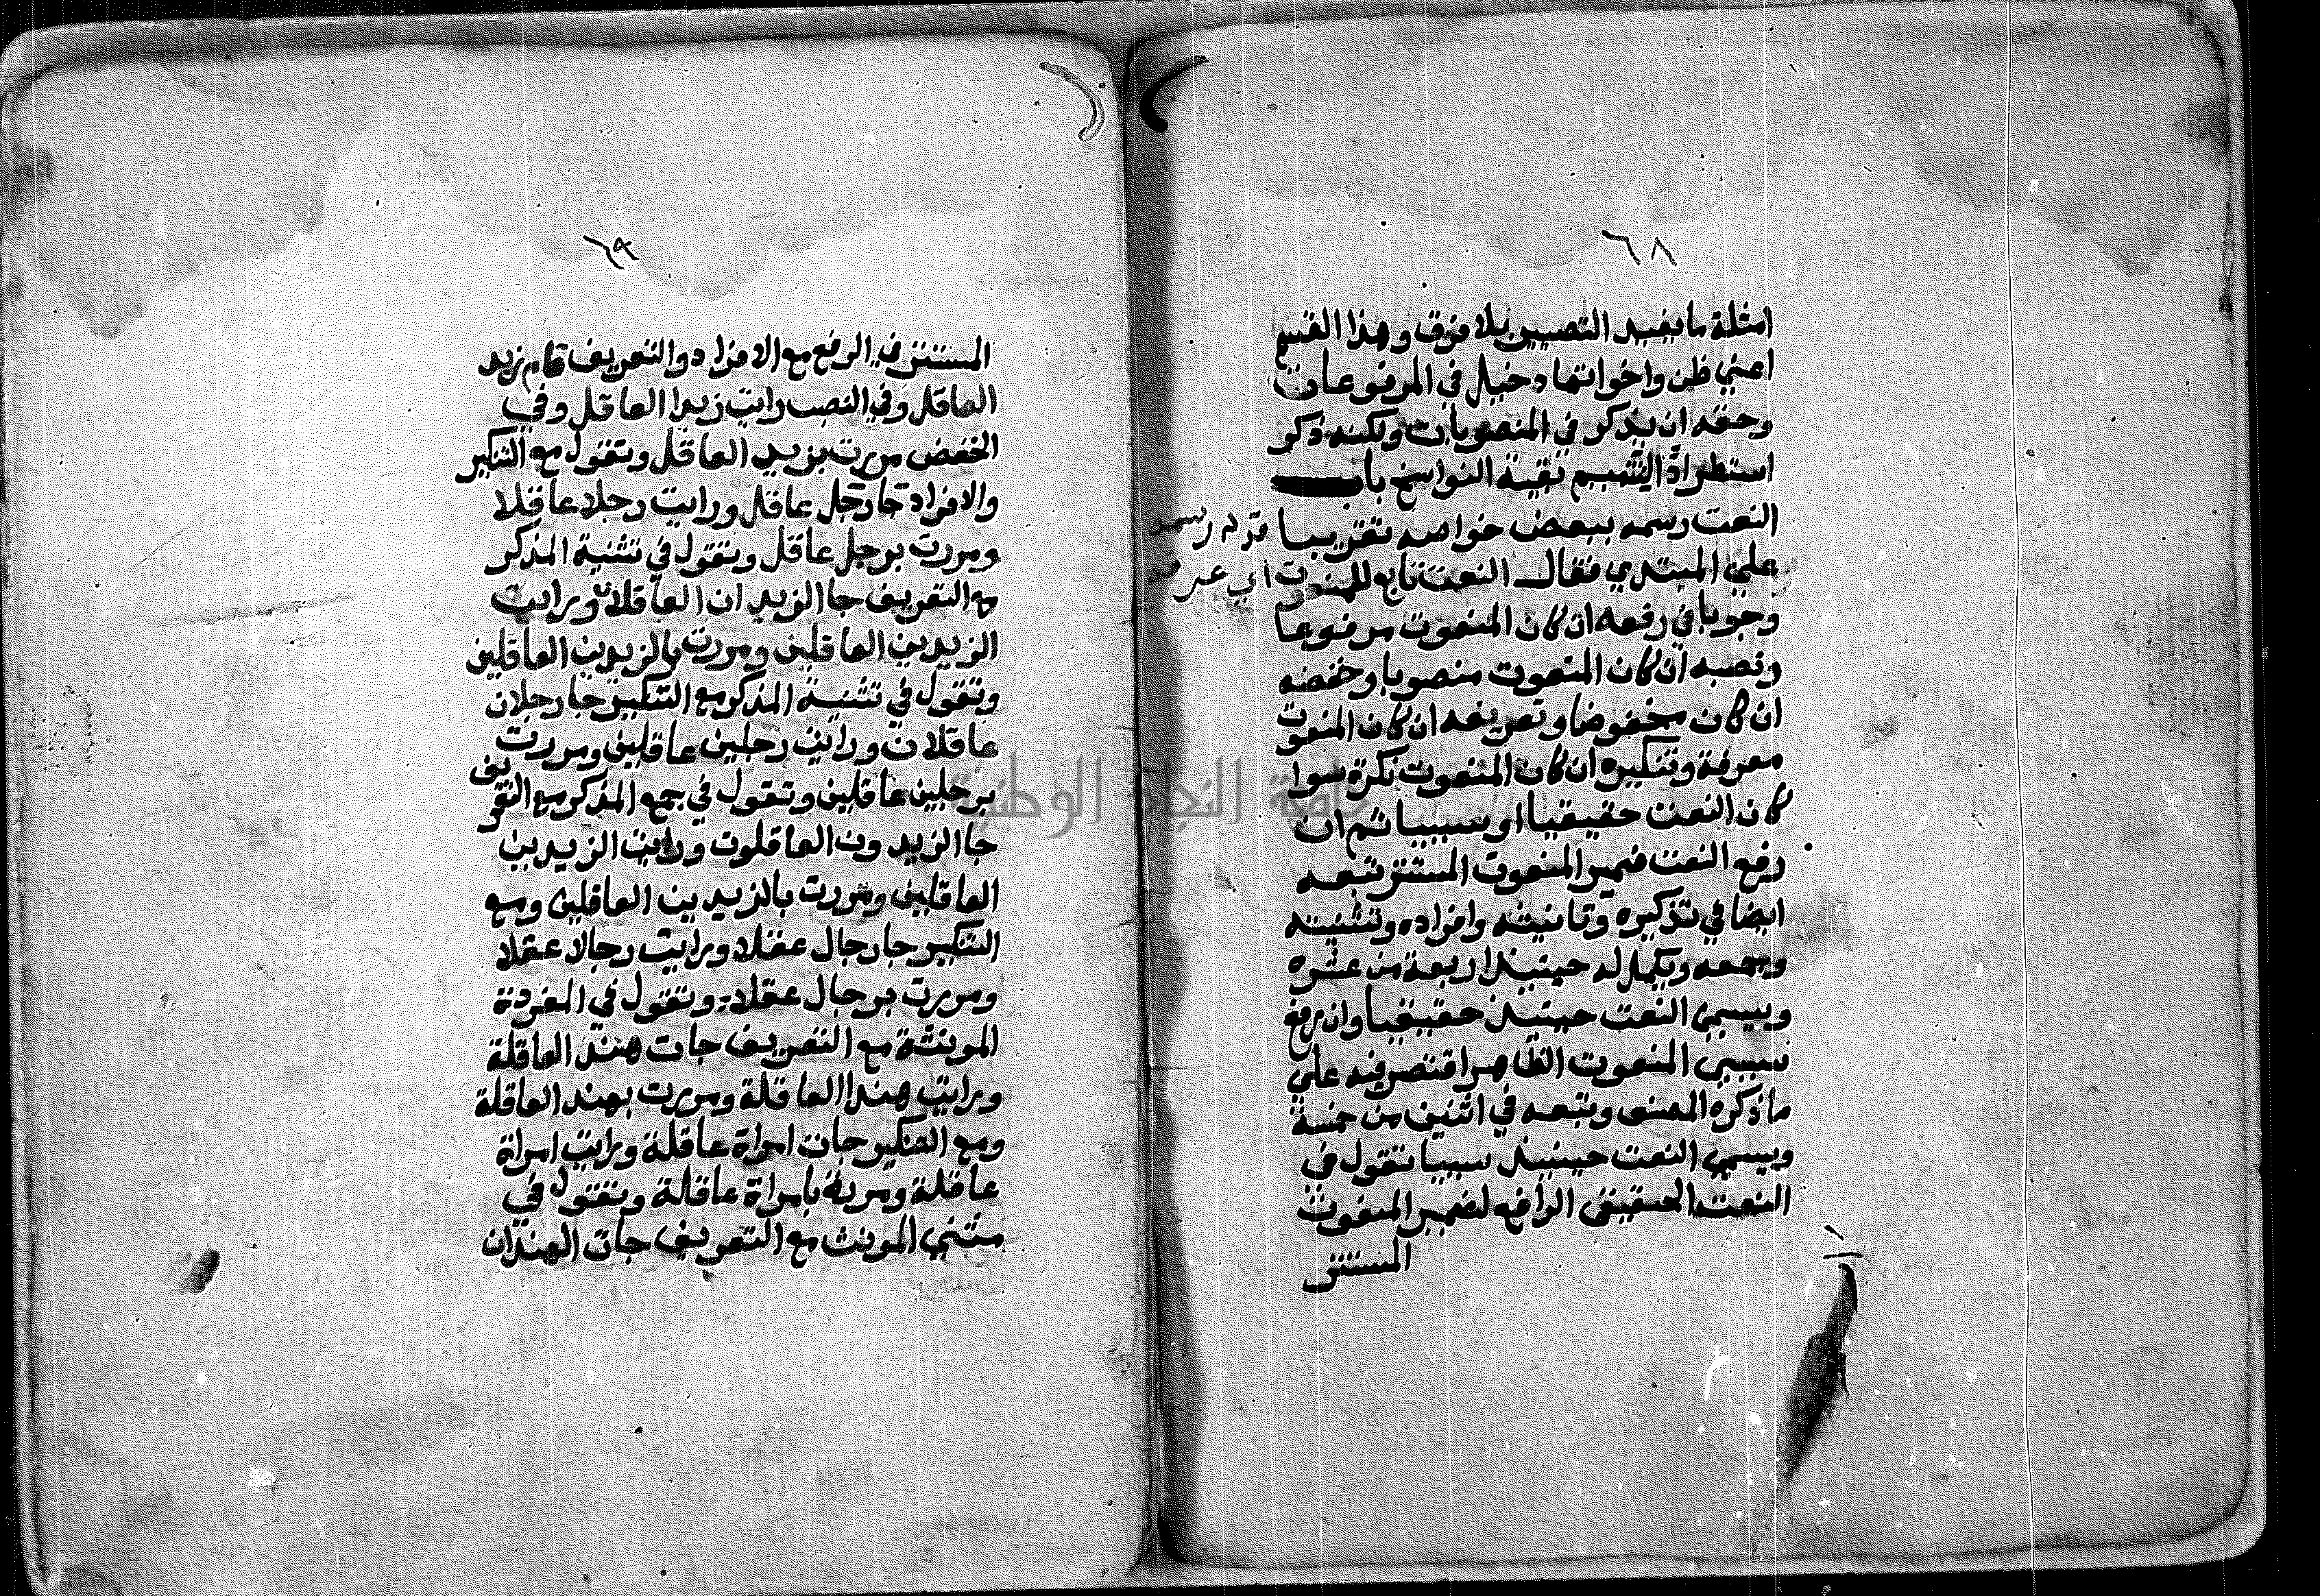 ٦٨
امثلة ما يفيد التصيير بلا فرق وهذا القسم
اعني ظن واخواتها دخيل في المرفوعات
وحقه ان يذكر في المنصوبات ولكنه ذكر
استطرادا لتتميم بقية النواسخ باب
النعت رسمه ببعض خواصه تقريبا
على المبتدي فقال النعت تابع للمنعوت
وجوبا في رفعه ان كان المنعوت مرفوعا
ونصبه ان كان المنعوت منصوبا وخفضه
ان كان مخفوضا وتعريفه ان كان المنعوت
معرفة وتنكيره ان كان المنعوت نكرة سوا
كان النعت حقيقيا او سببيا ثم ان
رفع النعت ضمير المنعوت المستتر تبعه
ايضا في تذكيره وتانيثه وافراده وتثنيته
وجمعه ويكمل له حينيذ اربعة من عشره
ويسمى النعت حينيذ حقيقيا وان رفع
سببي المنعوت الظاهر اقتصر فيه علي
ما ذكره المصنف وتبعه في اثنين من خمسة
ويسمي النعت حينيذ سببيا تقول في
النعت الحقيقي الرافع لضمير المنعوت
المستتر
قدم رسمه
اي عرفه
٦٩
المستتر في الرفع مع الافراد والتعريف قام زيد
العاقل وفي النصب رايت زيدا العاقل وفي
الخفض مررت بزيد العاقل وتقول مع التنكير
والافراد جا رجل عاقل ورايت رجلا عاقلا
ومررت برجل عاقل وتقول في تثنية المذكر
مع التعريف جا الزيد ان العاقلان ورايت
الزيدين العاقلين ومررت بالزيدين العاقلين
وتقول في تثنية المذكر مع التنكير جا رجلان
عاقلان ورايت رجلين عاقلين ومررت
برجلين عاقلين وتقول في جمع المذكر مع التعريف
جا الزيدون العاقلون ورايت الزيدين
العاقلين ومررت بالزيدين العاقلين ومع
التنكير جا رجال عقلا ورايت رجالا عقلا
ومررت برجال عقلا وتقول في المفردة
المونثة مع التعريف جات هند العاقلة
ورايت هندا العاقلة ومررت بهند العاقلة
ومع التنكير جات امراة عاقلة ورايت امراة
عاقلة ومررة بامراة عاقلة وتقول في
مثني المونث مع التعريف جات الهندان
جامعة النجاح الوطنية